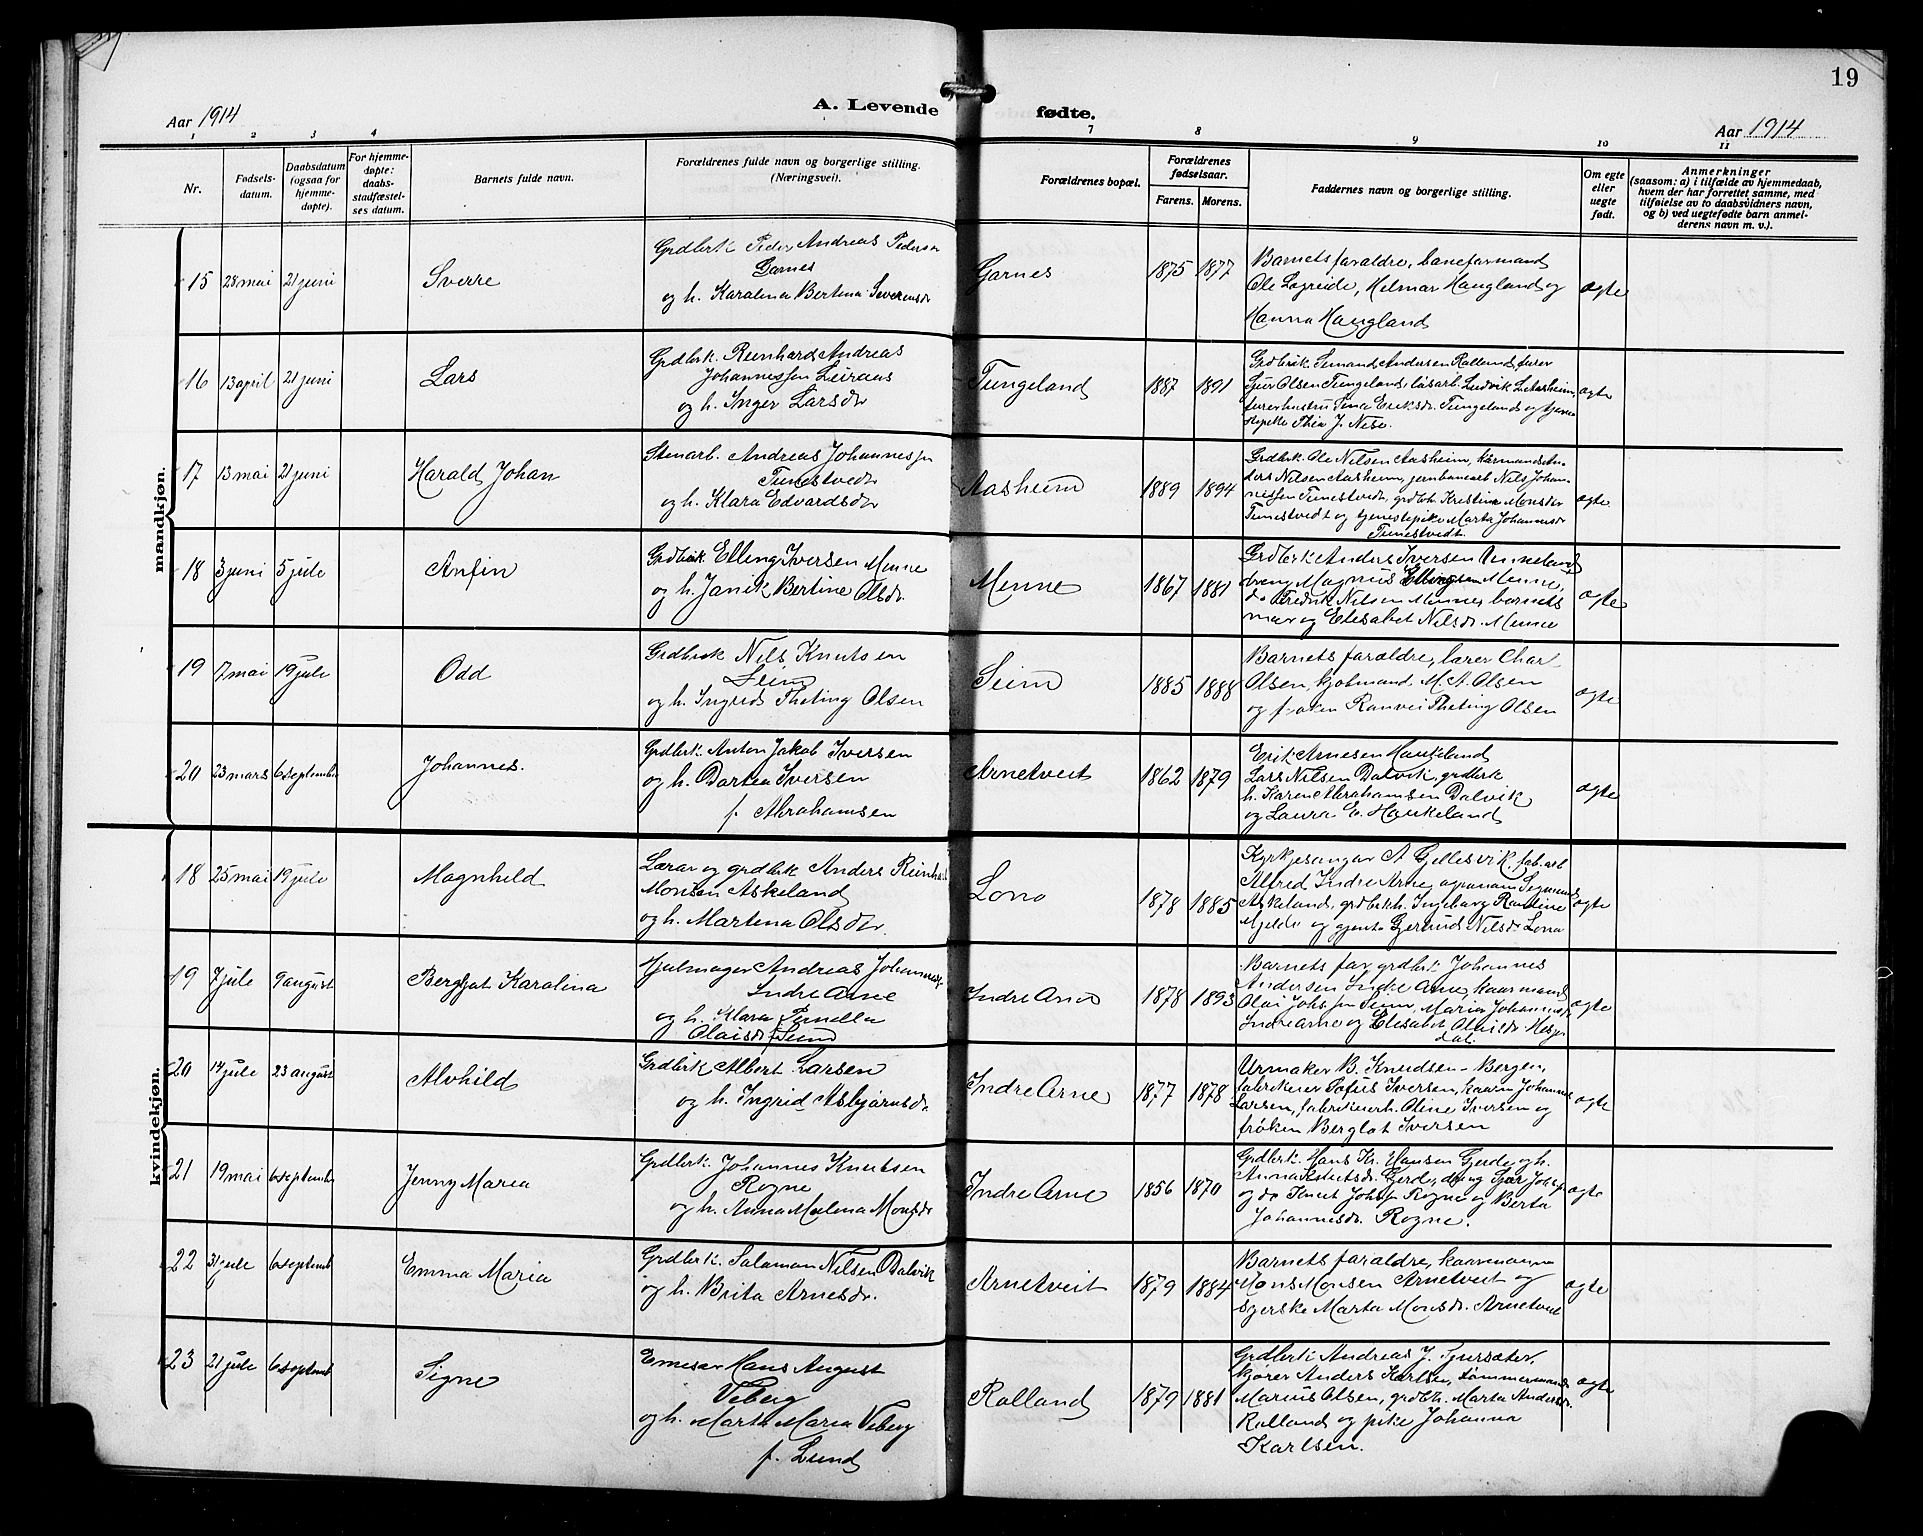 19
Aar 1914
A. Levende fødte.
Aar 1914
1 2 3 4 7 8 9 10 11
Nr.
Fødsels-
datum.
Daabsdatum
(ogsaa for
hjemme-
døpte).
For hjemme-
døpte:
daabs-
stadfæstel-
ses datum.
Barnets fulde navn.
Forældrenes fulde navn og borgerlige stilling.
(Næringsvei).
Forældrenes bopæl.
Forældrenes
fødselsaar.
Farens. Morens.
Faddernes navn og borgerlige stilling.
Om egte
eller
uegte
født.
Anmerkninger
(saasom: a) i tilfælde av hjemmedaab,
hvem der har forrettet samme, med
tilføielse av to daabsvidners navn,
og b) ved uegtefødte barn anmel-
derens navn m. v.).
mandkjøn.
15 28 mai 21 juni Sverre
Grdbrk Peder Andreas Pedersen
Garnes
og h. Karolina Bertina Severinsdr
Garnes 1875 1877
Barnets forældre, baneformand
Ole Løgreide, Helmar Haugland og
Hanna Haugland
ægte
16 13 april 21 juni Lars
Grdbrk. Reinhard Andreas
Johannessen
og h. Inger Larsdr
Tungeland 1887 1891
Grdbrk. Andersen Rolland,
Sjur Olsen Tungeland, løsarb. Ludvik
Tina Eriksdr. Tungeland og
Thea J. Nese.
ægte
17 13 mai 21 juni Harald Johan
Stenarb. Andreas Johannessen
Tunestvedt
og h. Klara Edvardsdr
Aasheim 1889 1894
Grdbrk. Ole Nilsen Aasheim, kårmand An-
ders Nilsen Aasheim, jernbanearb Nils Johan-
nessen Tunestvedt, grdbrh. Kristine Monsdr
Tunestvedt og tjenestepike Marta Johannesdr
Tunestvedt.
ægte
18 3 juni 5 jule Anfin
Grdbrk Elling Iversen Menne
og h. Janik Bertine Olsdr.
Menne 1867 1881
Grdbrk Anders Iversen Unneland,
dreng Magnus Ellingsen Menne,
do Fredrik Nilsen Menne, barnets
mor og Elisabet Nilsdr. Menne
ægte
19 7 mai 19 jule Odd
Grdbrk Nils Knutsen
Seim
og h. Ingrid Theting Olsen
Seim 1885 1888
Barnets forældre, lærer Charl
Olsen, kjøbmand M. A. Olsen
og frøken Ranvei Theting Olsen
ægte
20 23 mars 6 september Johannes.
Grdbrk. Anton Jakob Iversen
og h. Dortea Iversen
f. Abrahamsen
Arnetveit 1862 1879
Erik Arnesen Haukeland
Lars Nilsen Dalvik, grdbrk
h. Karen Abrahamsen Dalvik
og Laura E. Haukeland
ægte
kvindekjøn.
18 25 mai 19 jule Magnhild
Lærar og grdbrk Anders Reinhard
Monsen Askeland
og h. Martina Olsdr.
Lono 1878 1885
Kyrkjesangar A Gjellesvik, fab. arb
Alfred Indre Arne, Sigmund
Askeland, grdbrkh. Ingeborg Rastine
Mjelde og gjenta Gjertrud Nilsdr Lona
ægte
19 7 jule 9 august Bergljot Karolina
Hjulmager Andreas Johannesen
Indre Arne
og h. Klara Pernella
Olaisdr Seim
Indre Arne 1878 1893
Barnets far, grdbrk Johannes
Andersen Indre Arne, kaarmand
Olai Johs.sen Seim, Maria Johannesdr
Indre Arne og Elisabet Olaisdr Hesje-
dal
ægte
20 14 jule 23 august Alvhild
Grdbrk Albert Larsen
og h. Ingrid Asbjørnsdr.
Indre Arne 1877 1878
Urmaker B. Knudsen - Bergen,
fabrikeier Sofus Iversen, kaarm Johannes
Larsen, fabrikeierh. Oline Iversen og
frøken Berglot Iversen
ægte
21 19 mai 6 septemb Jenny Maria
Grdbrk. Johannes Knutsen
Rogne
og h. Anna Malena Monsdr
Indre Arne 1856 1870
Grdbrk. Hans Kr. Hansen Gjerde og h.
Anna Knutsdr. Gjerde, dreng Sjur Johs.
og do Knut Johs.sen Rogne og Berta
Johannesdr. Rogne.
ægte
22 31 jule 6 septemb Emma Maria
Grdbrk. Salamon Nilsen Dalvik
og h. Brita Arnesdr.
Arnetveit 1879 1884
Barnets forældre, kaarmann
Mons Monsen Arnetveit og
syerske Marta Monsdr. Arnetveit
ægte
23 21 jule 6 septemb Signe
Hans August
Viberg
og h. Marta Maria Viberg
f. Lund
Rolland 1879 1881
Grdbrk. Andreas J.
kjører Anders Karlsen, tømmermand
Marius Olsen, grdbrh. Marta Andersdr.
Rolland og pike Johanna
Karlsen.
ægte